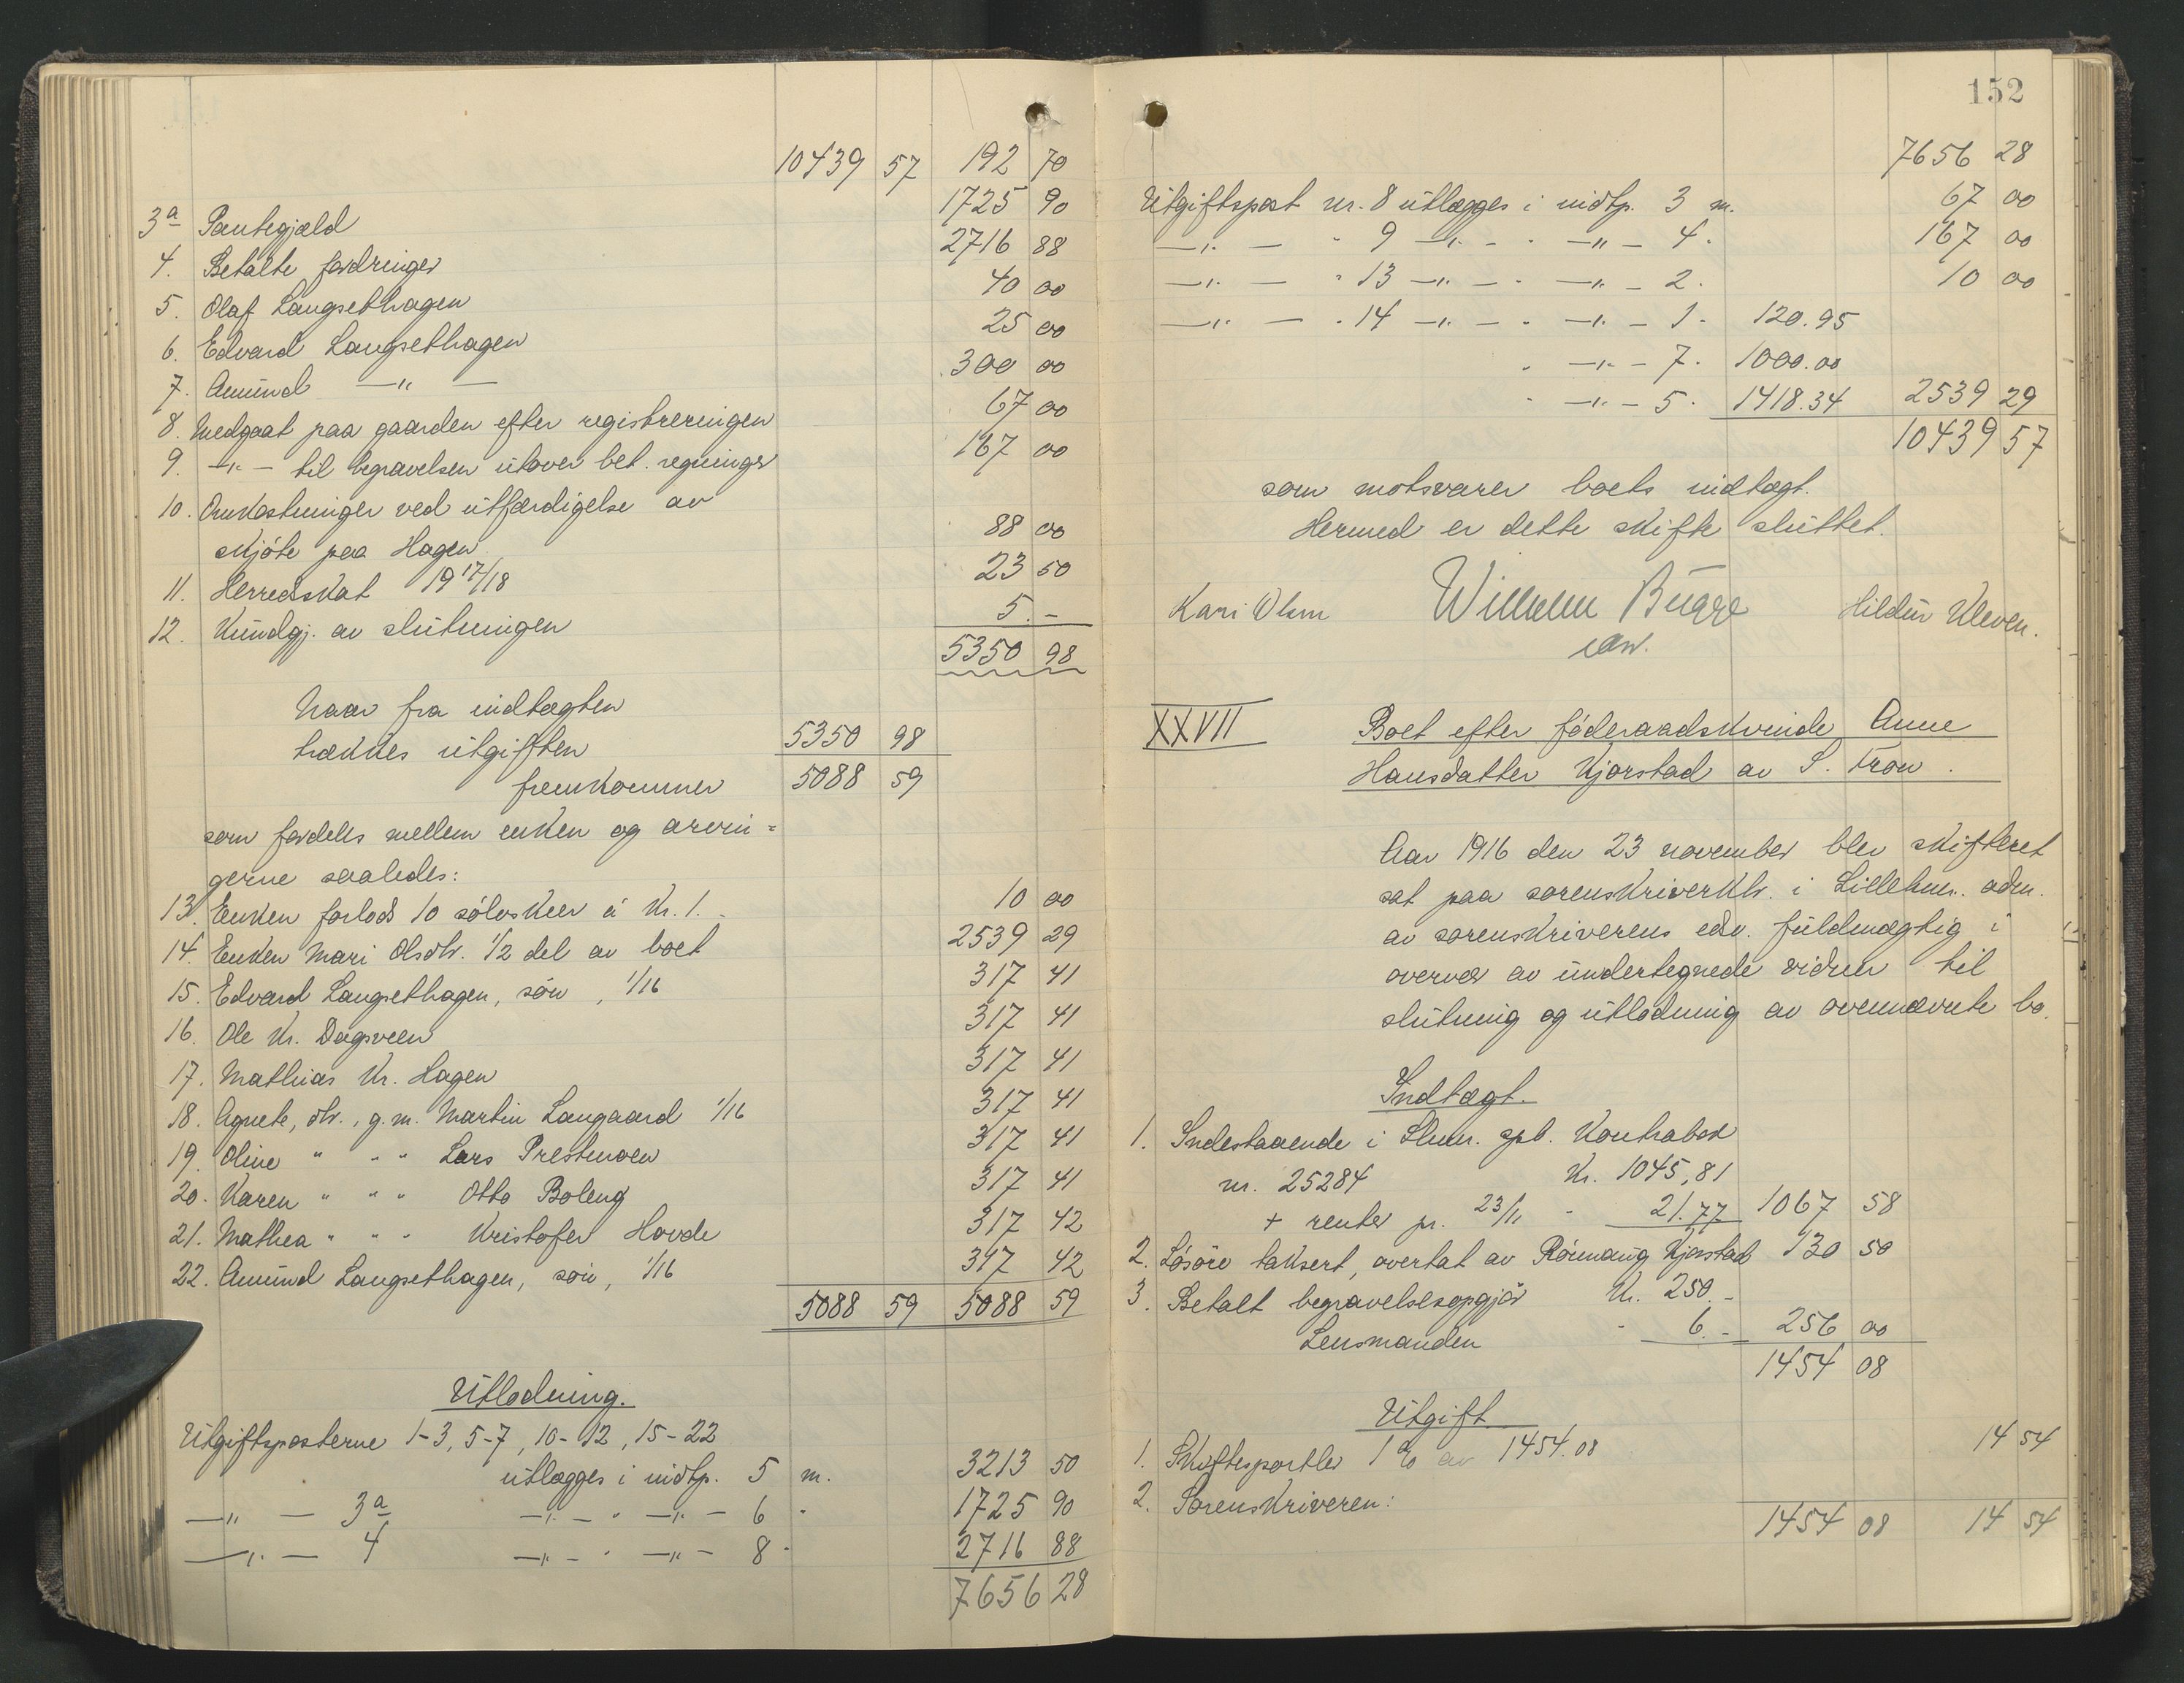 10439 57 192 70
3a Pantegjæld 1725 90
4. Betalte fordringer 2716 88
5. Olaf Langsethagen 40 00
6. Edvard Langsethagen 25 00
7. Amund —"— 300 00
8. Medgaat paa gaarden efter registreringen 67 00
9. —"— til begravelsen utover bet. regninger 167 00
10. Omkostninger ved utfærdigelse av
skjøte paa Hagen 88 00
11. Herredskat 1917/18 23 50
12. Kundgj. av slutningen 5.-
5350 98
Naar fra indtægten
trækkes utgiften 5350 98
fremkommer 5088 59
som fordeles mellem enken og arvin-
gerne saaledes:
13. Enken forlods 10 sølvskeer á Kr. 1. - 10 00
14. Enken Mari Olsdtr. 1/2 del av boet 2539 29
15. Edvard Langsethagen, søn, 1/16 317 41
16. Ole Kr. Dagsveen 317 41
17. Mathias Kr. Hagen 317 41
18. Agnete, dtr., g.m. Martin Langaard 1/16 317 41
19. Oline " " " Lars Prestmoen 317 41
20. Karen " " " Otto Boleng 317 41
21. Mathea " " " Kristofer Hovde 317 42
22. Amund Langsethagen, søn, 1/16 317 42
5088 59 5088 59
Utlodning.
Utgiftsposterne 1-3, 5-7, 10-12, 15-22
utlægges i indtp. 5 m. 3213 50
—"— 3a —"— " —"— 6 " 1725 90
—"— 4 —"— " —"— 8 " 2716 88
7656 28
152
7656 28
Utgiftspost nr. 8 utlægges i indtp. 3 m. 67 00
—"— " 9 —"— " —"— 4 " 167 00
—"— " 13 —"— " —"— 2 " 10 00
—"— " 14 —"— " —"— 1 " 120.95
" —"— 7 " 1000.00
" —"— 5 " 1418.34 2539 29
10439 57
som motsvarer boets indtægt.
Hermed er dette skifte sluttet.
Kari Olsen Wilhelm Bugge Hildur Kleven.
XXVII Boet efter føderaadskvinde Anne
Hansdatter Kjorstad av S. Fron.
Aar 1916 den 23 november blev skifteret
sat paa sorenskriverktr. i Lillehmr. adm.
av sorenskriverens edv. fuldmægtig i
overvær av undertegnede vidner til
slutning og utlodning av ovennævnte bo.
Indtægt.
1. Indestaaende i Lhmr. spb. Kontrabok
nr. 25284 Kr. 1045,81
+ renter pr. 23/11 " 21.77 1067 58
2. Løsøre taksert, overtat av Rønnaug Kjorstad 130 50
3. Betalt begravelsesopgjør Kr. 250.-
Lensmanden " 6.- 256 00
1454 08
Utgift
1. Skiftesportler 1 % av 1454.08 14 54
2. Sorenskriveren:
1454 08 14 54